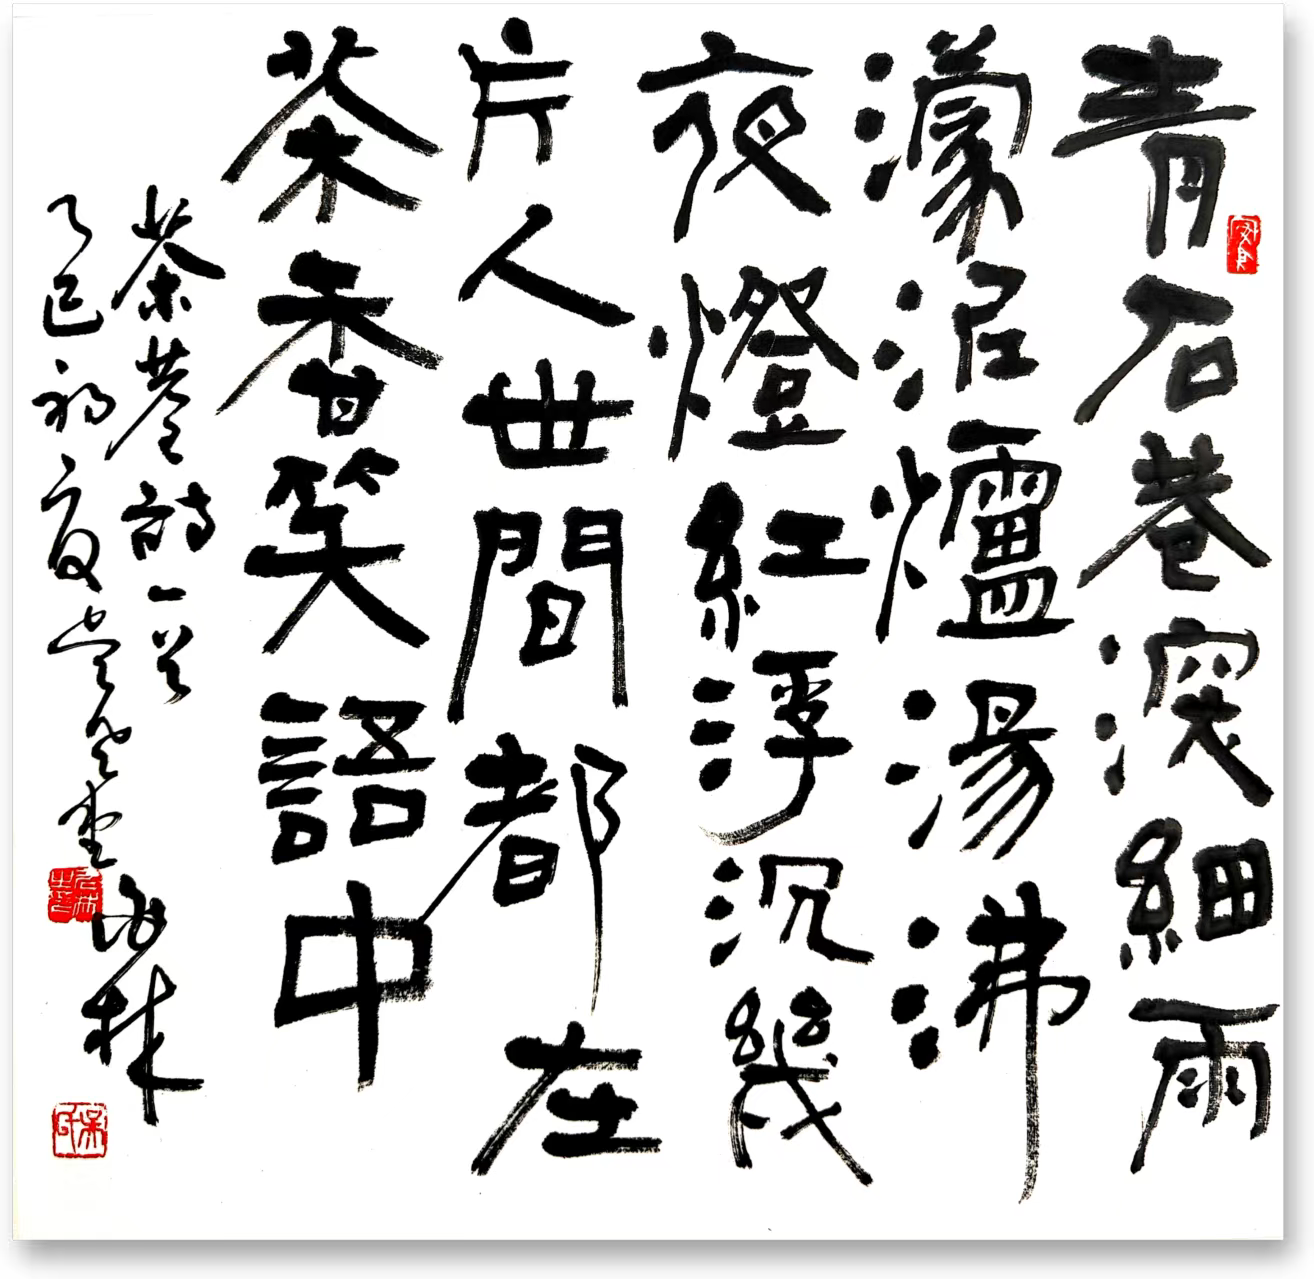 青石巷深細雨
濛泥爐湯沸
夜燈紅浮沉幾
片人世間都在
茶香笑語中
茶巷詩一首
乙巳初夏
林